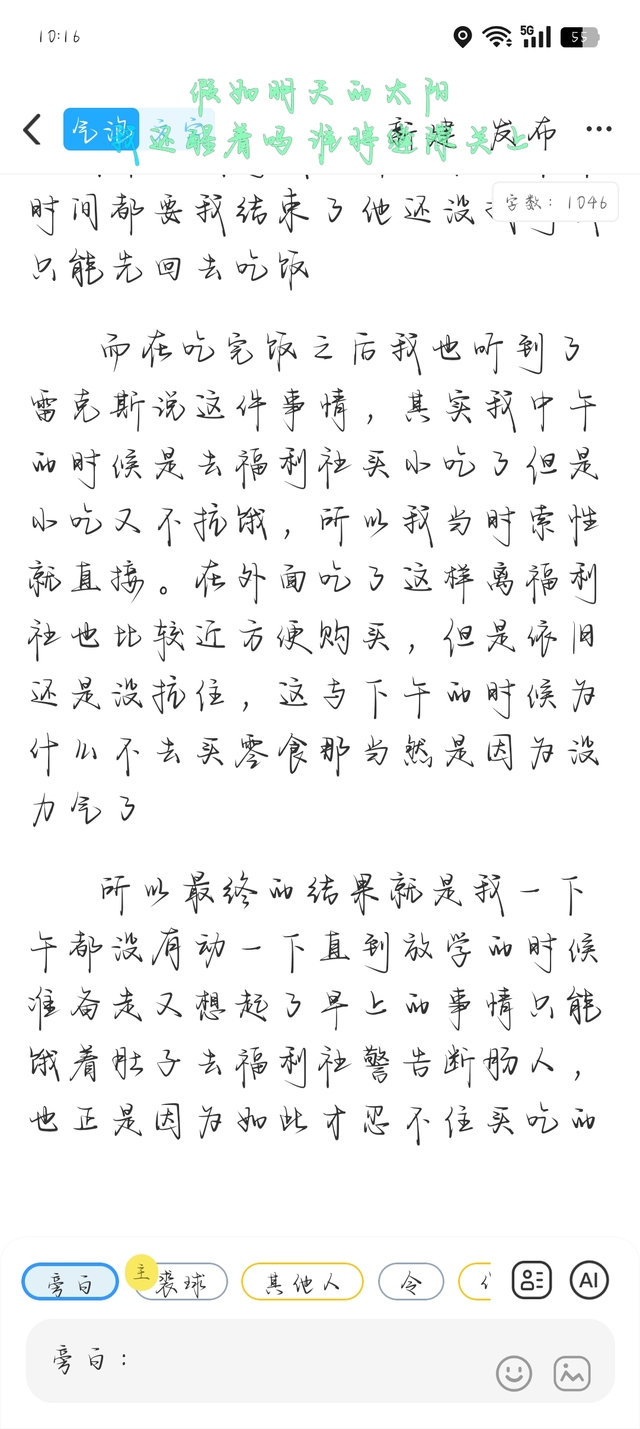 10:16
5G
55
假如明天的太阳
我还醒着吗 谁将
关上
气泡
文字
新建
发布
字数：1046
时间都要我结束了他还没
只能先回去吃饭
而在吃完饭之后我也听到了
雷克斯说这件事情，其实我中午
的时候是去福利社买小吃了但是
小吃又不抗饿，所以我当时索性
就直接。在外面吃了这样离福利
社也比较近方便购买，但是依旧
还是没抗住，这与下午的时候为
什么不去买零食那当然是因为没
力气了
所以最终的结果就是我一下
午都没有动一下直到放学的时候
准备走又想起了早上的事情只能
饿着肚子去福利社警告断肠人，
也正是因为如此才忍不住买吃的
旁白
主
裘球
其他人
令
AI
旁白：